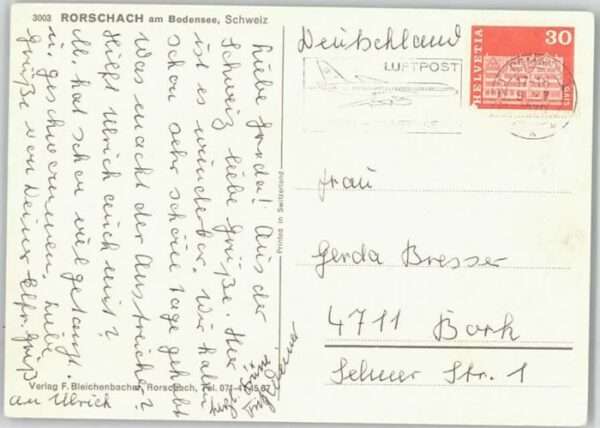 3003 RORSCHACH am Bodensee, Schweiz
Liebe Gerda! Aus der
Schweiz liebe Grüße. Hier
ist es wunderbar. Wir haben
schon sehr schöne Tage gehabt
Was macht der Anstreicher?
Hilft Ulrich auch mit?
M. hat schon viel getanzt
u. geschwommen. Liebe
Grüße von Deiner Elfr. Gruß
an Ulrich
herzl.
Grüße
Verlag F. Bleichenbacher, Rorschach, Tel. 071-41 45 67
Printed in Switzerland
Deutschland
LUFTPOST
HELVETIA
30
GAIS
Frau
Gerda Bresser
4711 Bork
Selmer Str. 1